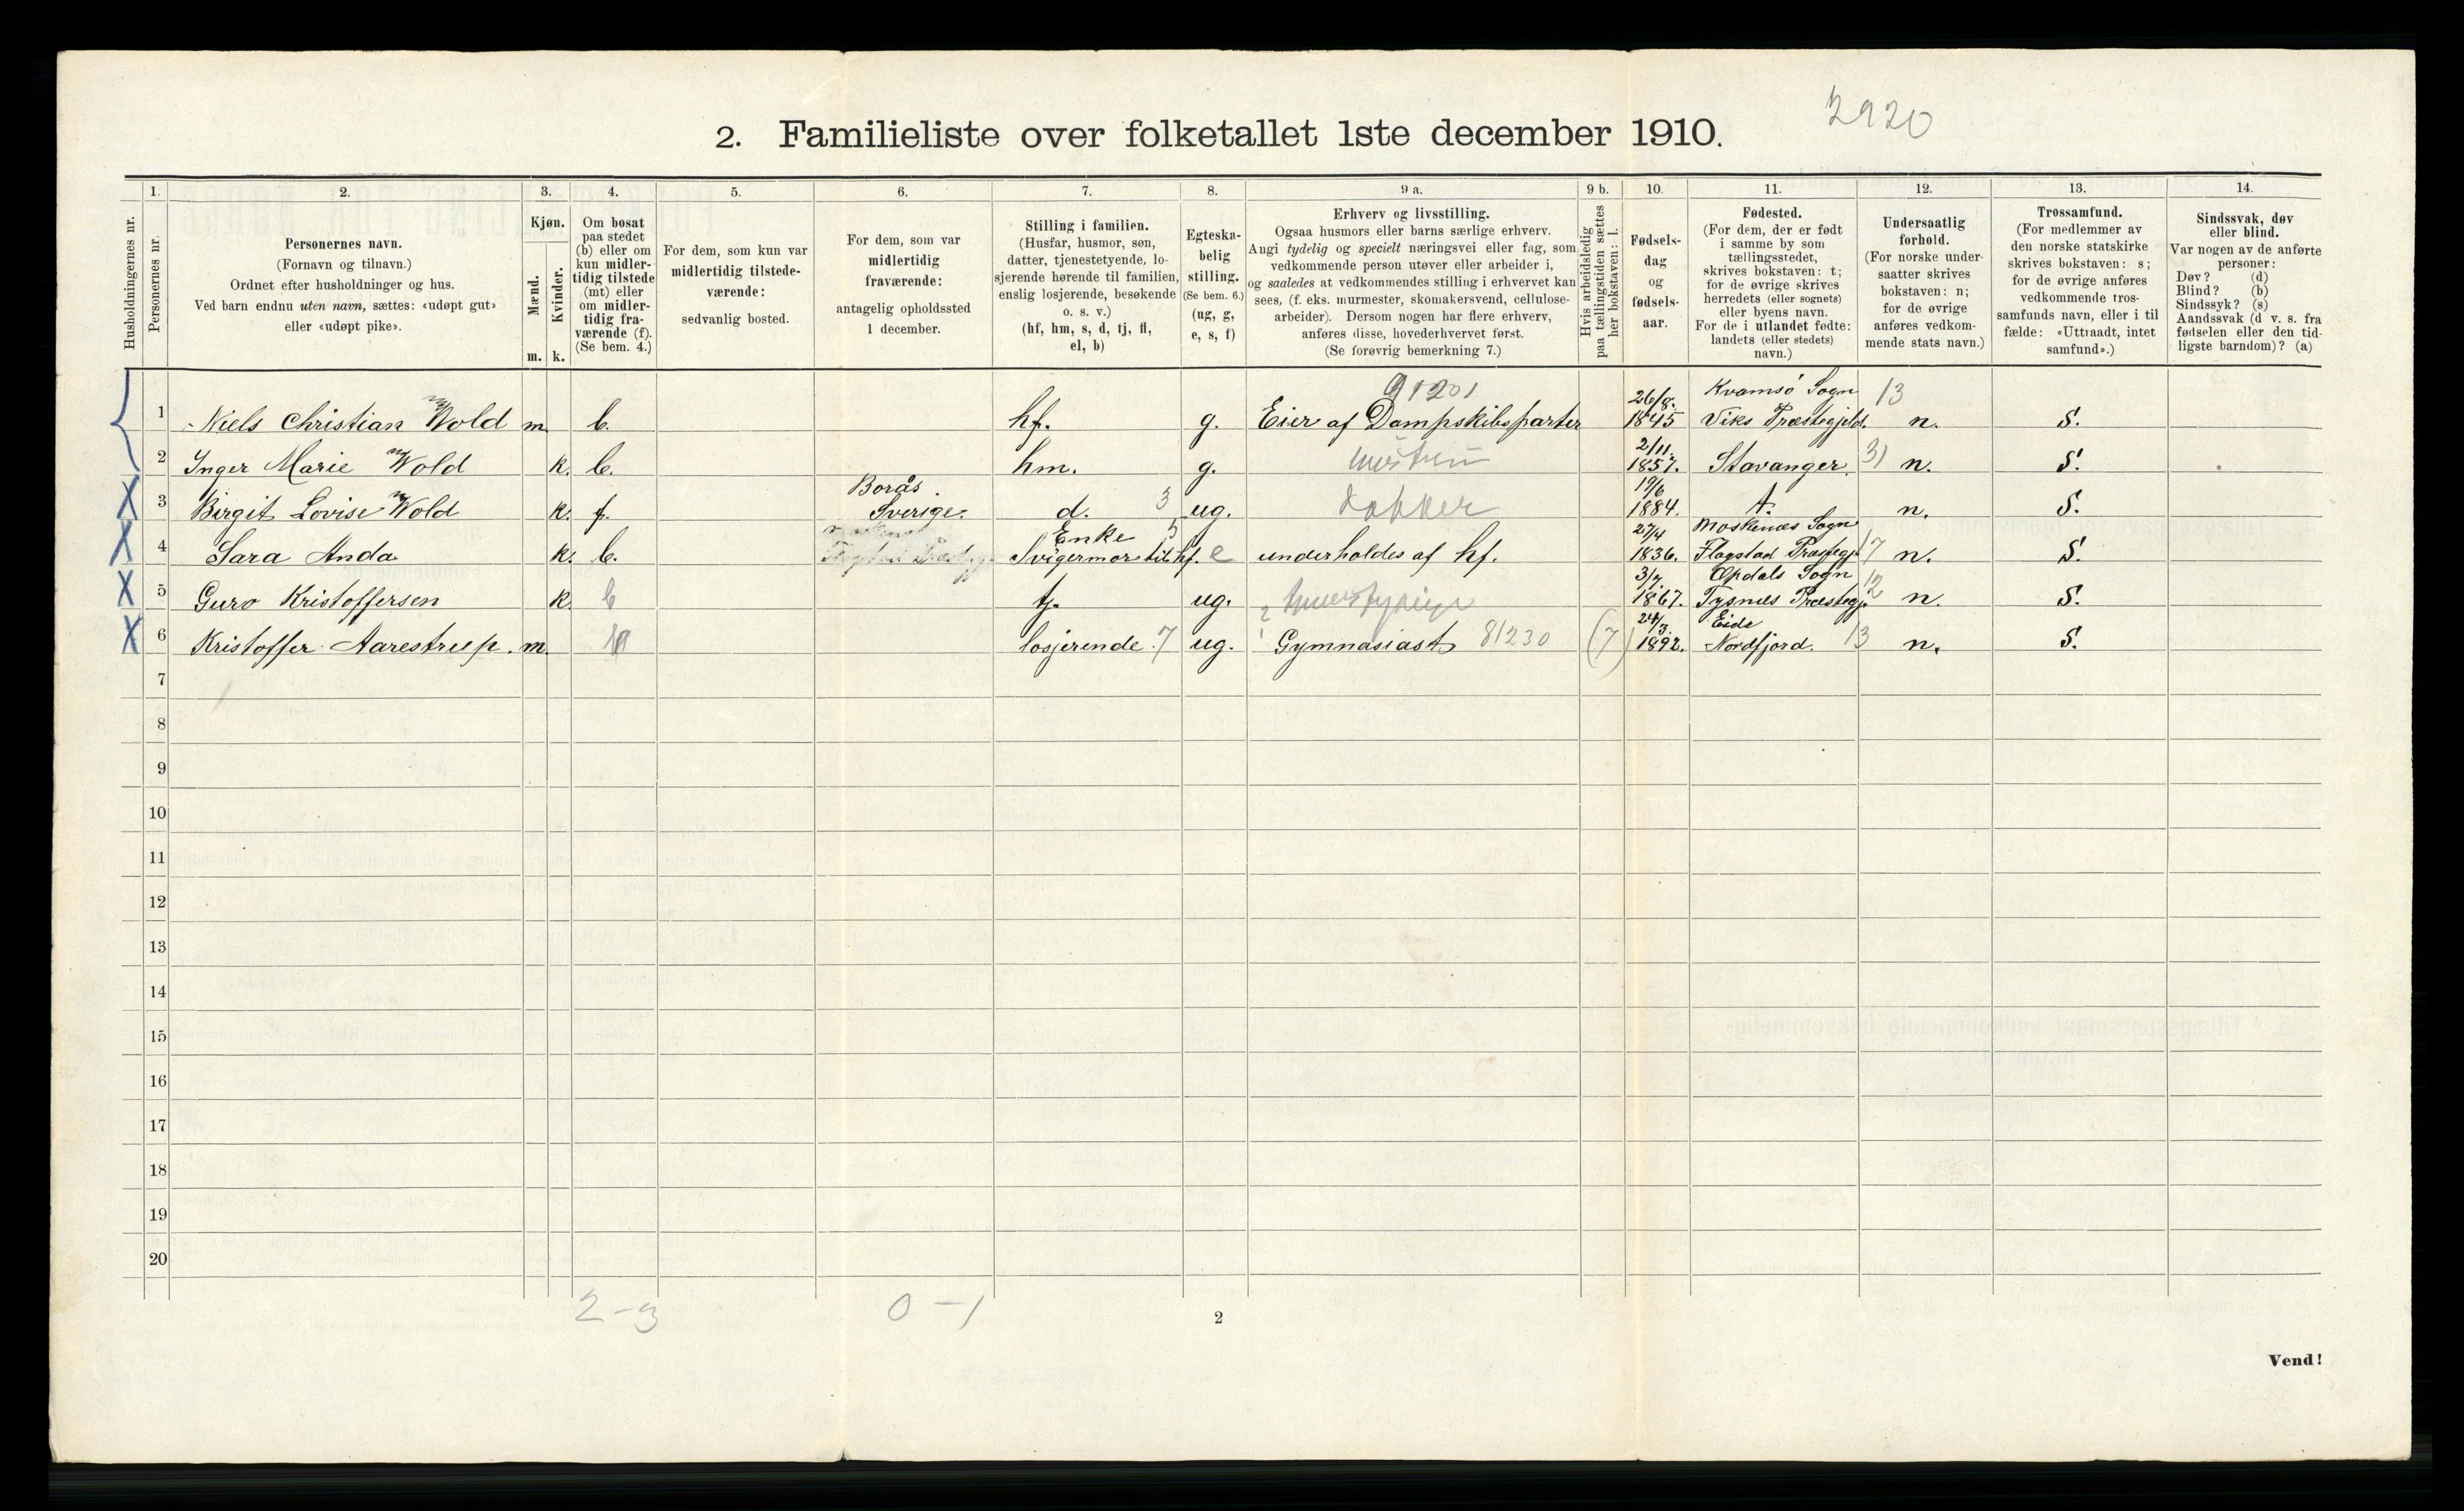 2920
2. Familieliste over folketallet 1ste december 1910.
Husholdningernes nr.
1.
Personernes nr.
2.
Personernes navn.
(Fornavn og tilnavn.)
Ordnet efter husholdninger og hus.
Ved barn endnu uten navn, sættes: «udøpt gut»
eller «udøpt pike».
3.
Kjøn.
Mænd.
Kvinder.
m. k.
4.
Om bosat
paa stedet
(b) eller om
kun midler-
tidig tilstede
(mt) eller
om midler-
tidig fra-
værende (f).
(Se bem. 4.)
5.
For dem, som kun var
midlertidig tilstede-
værende:
sedvanlig bosted.
6.
For dem, som var
midlertidig
fraværende:
antagelig opholdssted
1 december.
7.
Stilling i familien.
(Husfar, husmor, søn,
datter, tjenestetyende, lo-
sjerende hørende til familien,
enslig losjerende, besøkende
o. s. v.)
(hf, hm, s, d, tj, fl,
el, b)
8.
Egteska-
belig
stilling.
(Se bem. 6.)
(ug, g,
e, s, f)
9 a.
Erhverv og livsstilling.
Ogsaa husmors eller barns særlige erhverv.
Angi tydelig og specielt næringsvei eller fag, som
vedkommende person utøver eller arbeider i,
og saaledes at vedkommendes stilling i erhvervet kan
sees, (f. eks. murmester, skomakersvend, cellulose-
arbeider). Dersom nogen har flere erhverv,
anføres disse, hovederhvervet først.
(Se forøvrig bemerkning 7.)
9 b.
Hvis arbeidsledig
paa tællingstiden sættes
her bokstaven: l.
10.
Fødsels-
dag
og
fødsels-
aar.
11.
Fødested.
(For dem, der er født
i samme by som
tællingsstedet,
skrives bokstaven: t;
for de øvrige skrives
herredets (eller sognets)
eller byens navn.
For de i utlandet fødte:
landets (eller stedets)
navn.)
12.
Undersaatlig
forhold.
(For norske under-
saatter skrives
bokstaven: n;
for de øvrige
anføres vedkom-
mende stats navn.)
13.
Trossamfund.
(For medlemmer av
den norske statskirke
skrives bokstaven: s;
for de øvrige anføres
vedkommende tros-
samfunds navn, eller i til
fælde: «Uttraadt, intet
samfund».)
14.
Sindssvak, døv
eller blind.
Var nogen av de anførte
personer:
Døv? (d)
Blind? (b)
Sindssyk? (s)
Aandssvak (d v. s. fra
fødselen eller den tid-
ligste barndom)? (a)
91201 26/8. Kvamsö Sogn 13
1 Niels Christian Wold m. b. hf. g. Eier af Dampskibsparter 1845 Viks Præstegjeld. n. S.
2/11.
2 Inger Marie Wold k. b. hm. g. hustru 1857. Stavanger. 31 n. S.
Borås. 19/6
3 Birgit Lovise Wold k. f. Sverige. d. 3 ug. 1884. t. n. S.
Enke 5 27/4 Moskenæs Sogn
4 Sara Anda k. b. Svigermor til hf. e underholdes af hf. 1836. Flagstad Præstegj. 17 n. S.
3/7. Opdals Sogn 12
5 Guro Kristoffersen k. b tj. ug. 1867. Tysnæs Præstegj. n. S.
24/3. Eide
6 Kristoffer Aarestrup. m. losjerende. 7 ug. Gymnasiast 81230 (7) 1892. Nordfjord. 13 n. S.
7
8
9
10
11
12
13
14
15
16
17
18
19
20
2-3 0-1
2
Vend!